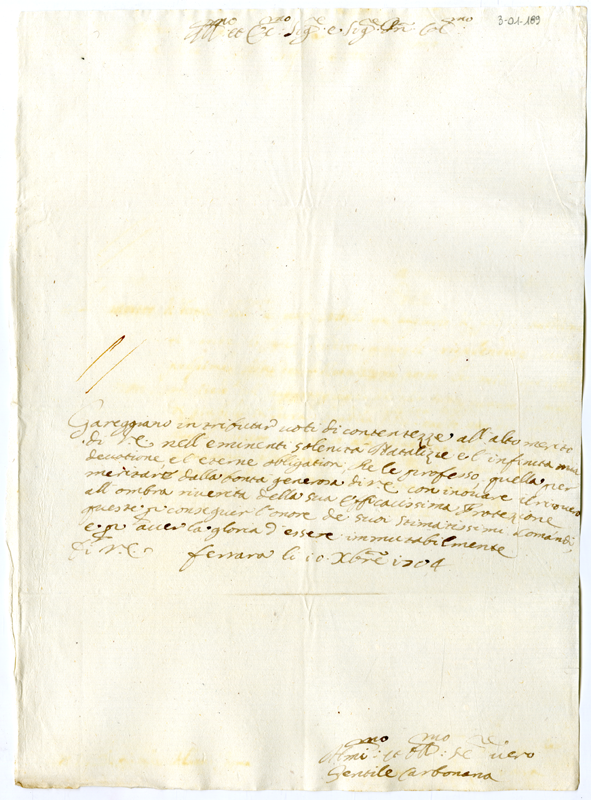 3-01-189
Ill.mo et Ecc.mo Sig.re e Sig.re Prn Col.mo
Gareggiano in tributar uoti di contentezze all'alto merito
di V.E. nell'eminenti solenità Natalizie e l'infinita mia
deuotione e l'eterne obligationi, che le professo, quella per
meritare dalla bontà generosa di V.E. con inouare il ricouero
all'ombra riuerita della sua Efficacissima Protezione
queste p conseguir l'onore de suoi stimatissimi Comandi,
e p auer la gloria d'essere immutabilmente
Di V.E. Ferrara li 10 Xbre 1704
Vmi.mo et Obl.mo Se.re uero
Gentile Carbonana